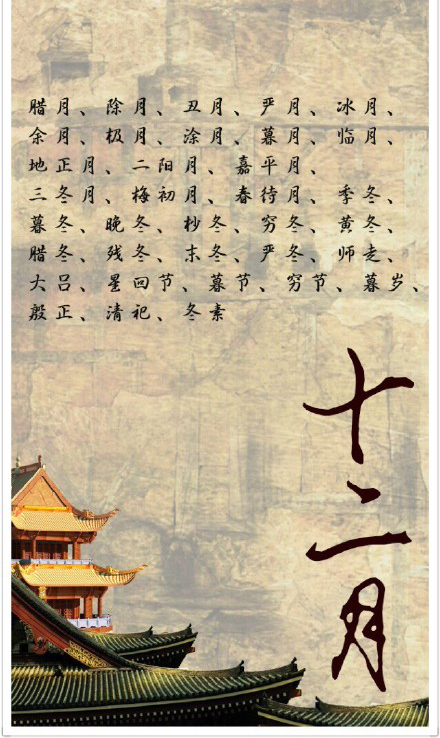 腊月、除月、丑月、严月、冰月、
余月、极月、涂月、暮月、临月、
地正月、二阳月、嘉平月、
三冬月、梅初月、春待月、季冬、
暮冬、晚冬、杪冬、穷冬、黄冬、
腊冬、残冬、末冬、严冬、师走、
大吕、星回节、暮节、穷节、暮岁、
殷正、清祀、冬素
十二月